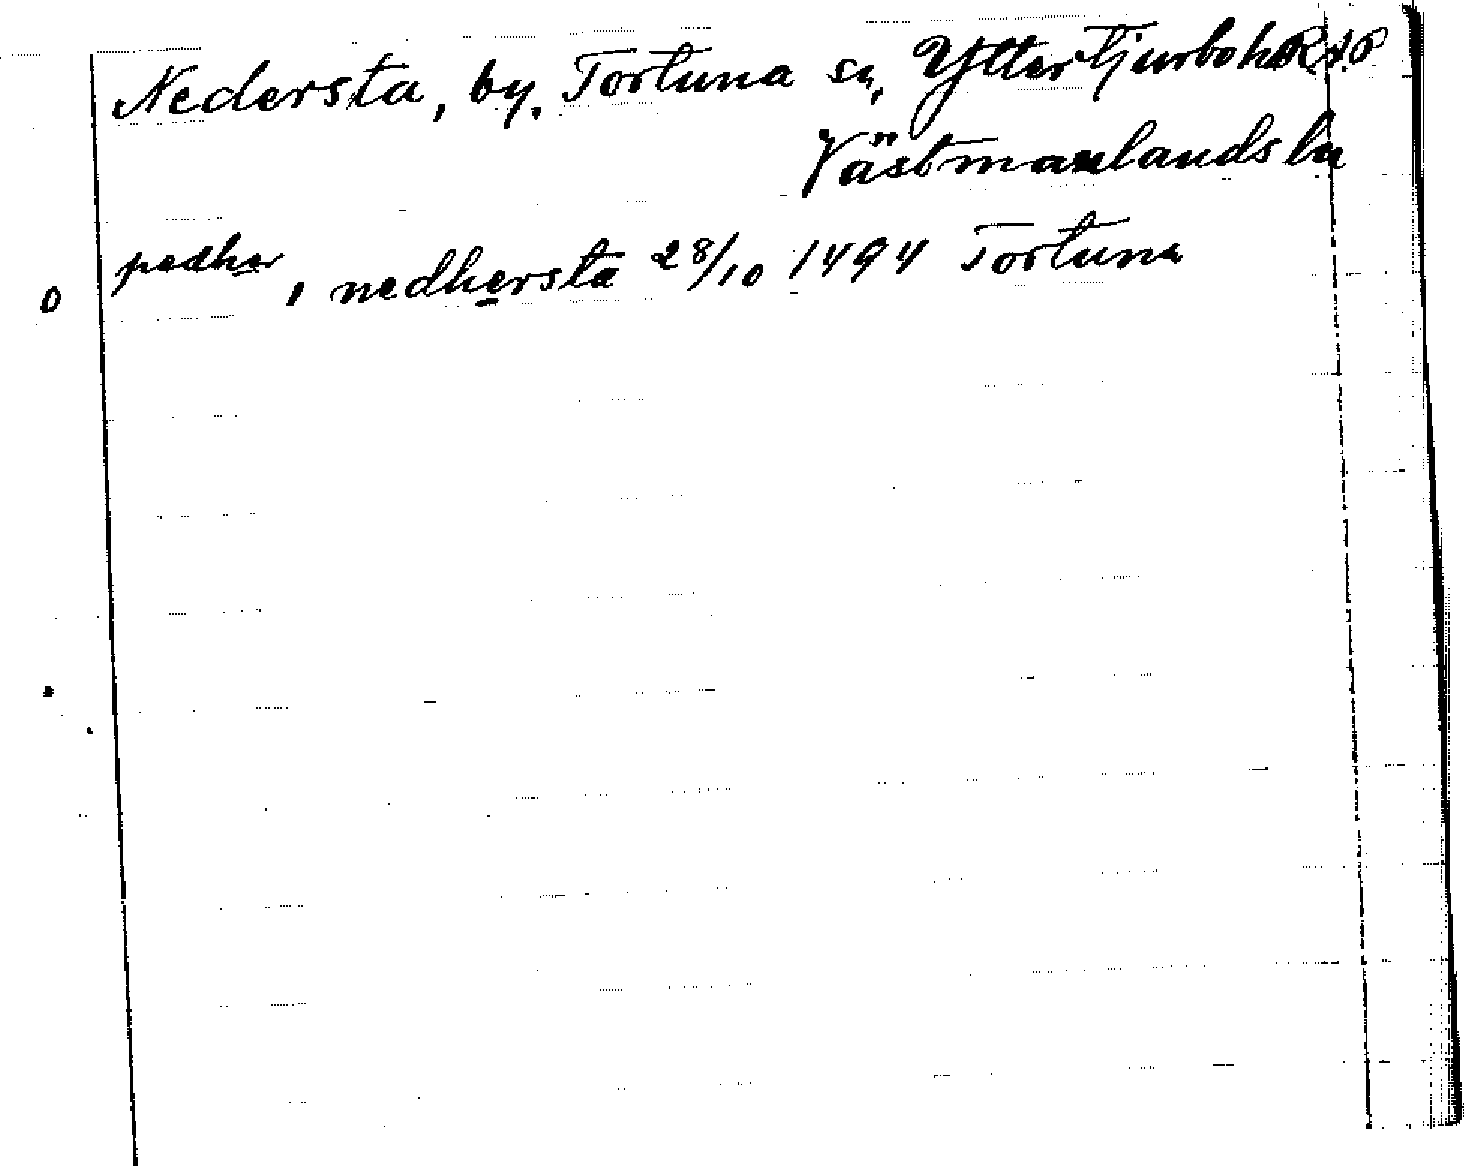 Nedersta, by, Tortuna sn, Yttertjurbo hd RAP
Västmanlands län
o pedher, nedhersta 28/10 1494 Tortuna